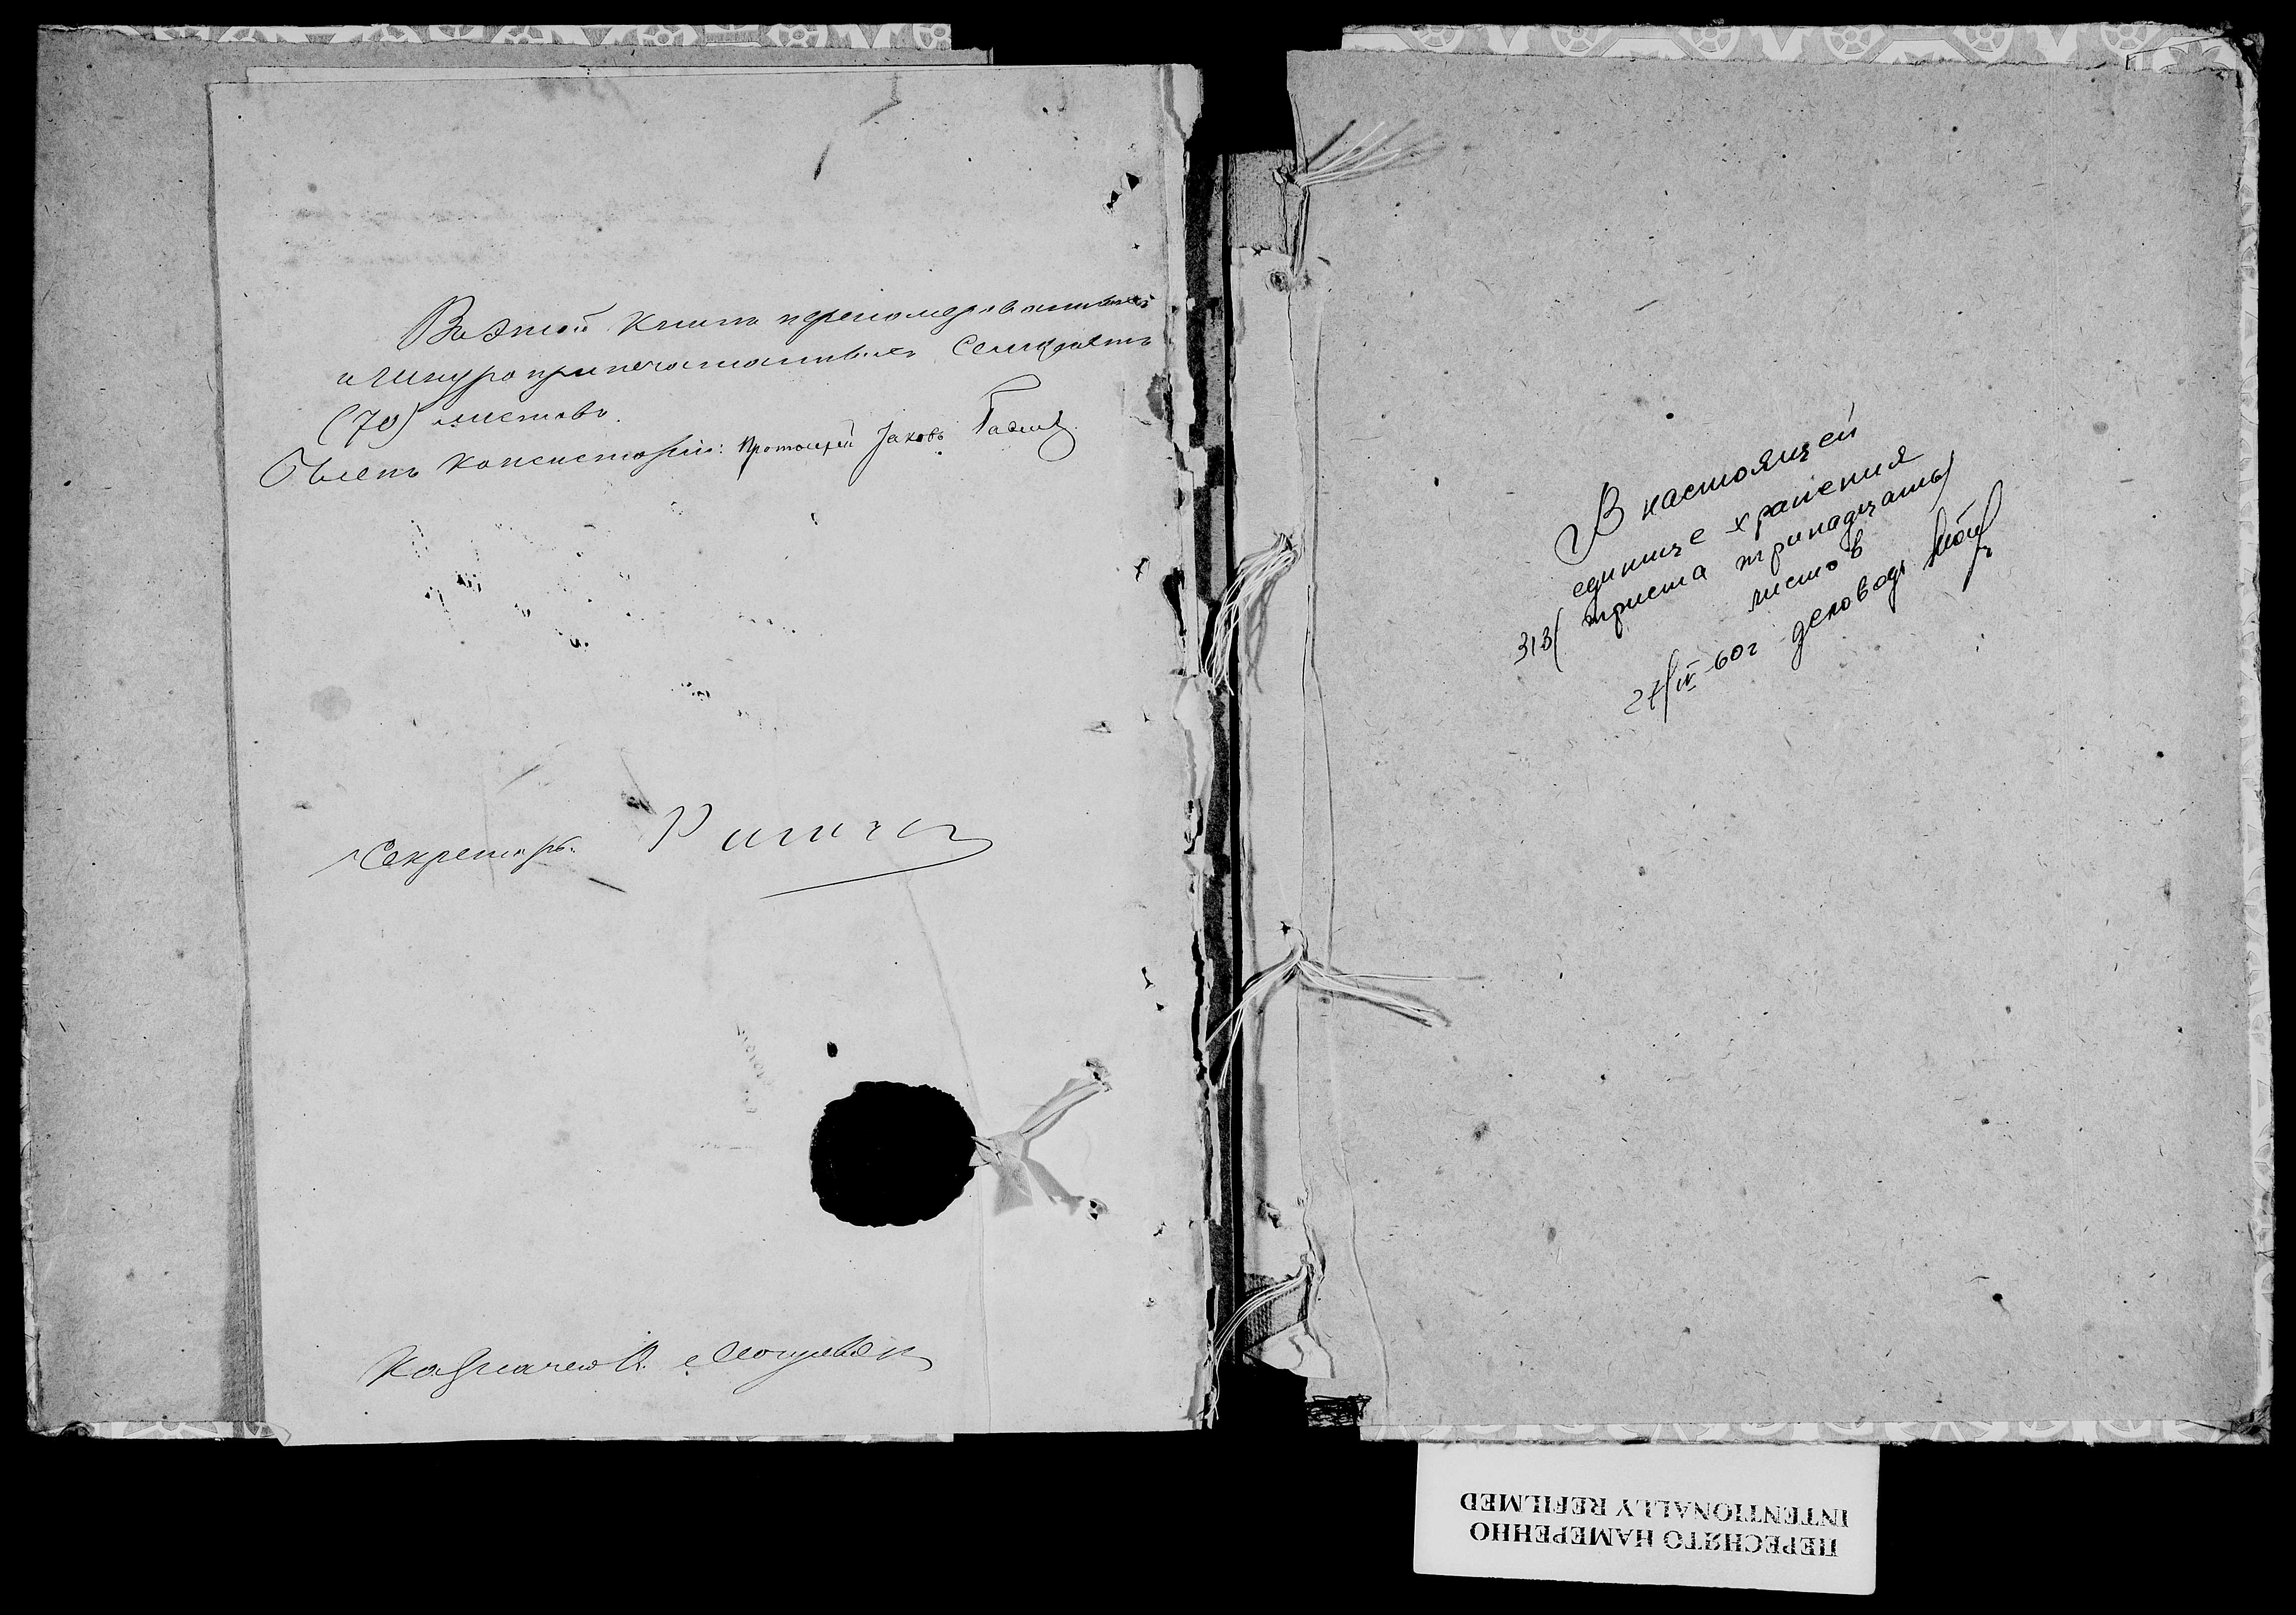 Въ этой книгѣ перенумерованныхъ
и шнуроприпечатанныхъ семидесять
(70) листовъ.
Членъ Консисторіи: Протоіерей Іаковъ
Секретарь
Казначей
В настоящей
единице хранения
313/ триста тринадцать/
листов
27/IV-60г деловод
ПЕРЕСНЯТО НАМЕРЕННО
INTENTIONALLY REFILMED